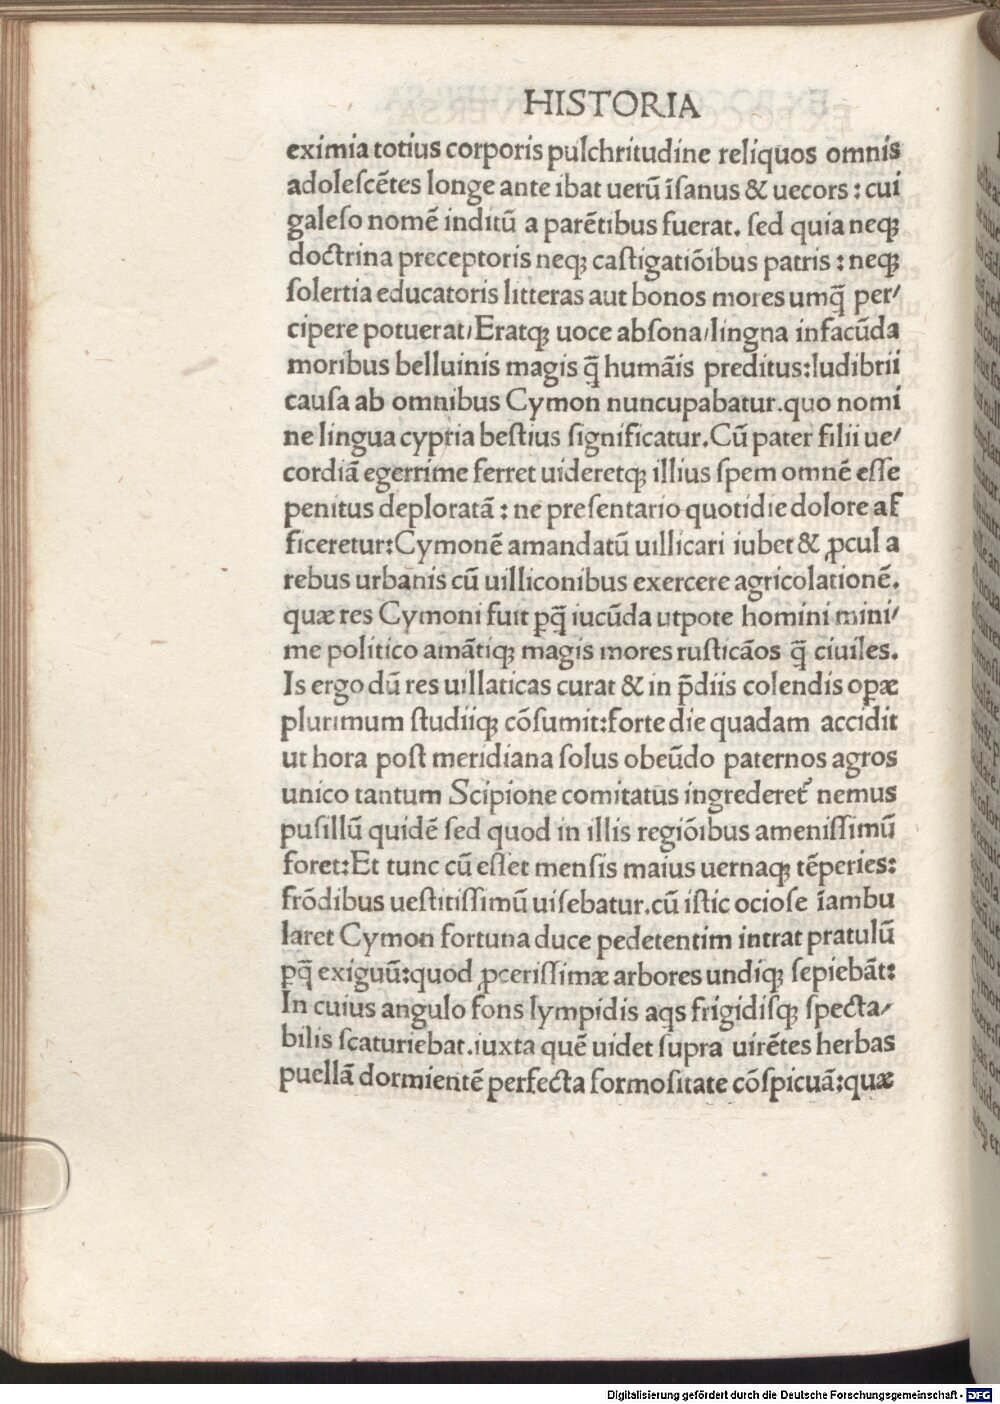 HISTORIA
eximia totius corporis pulchritudine reliquos omnis
adoleſcētes longe ante ibat uerū īſanus & uecors : cui
galeſo nomē inditū a parētibus fuerat. ſed quia neqꝫ
doctrina preceptoris neqꝫ caſtigatiōibus patris : neqꝫ
ſolertia educatoris litteras aut bonos mores umq̄ per/
cipere potuerat/Eratqꝫ uoce abſona/lingna infacūda
moribus belluinis magis q̄ humāis preditus:ludibrii
cauſa ab omnibus Cymon nuncupabatur.quo nomi
ne lingua cypria beſtius ſignificatur.Cū pater filii ue/
cordiā egerrime ferret uideretqꝫ illius ſpem omnē eſſe
penitus deploratā : ne preſentario quotidie dolore af
ficeretur:Cymonē amandatū uillicari iubet & ꝓcul a
rebus urbanis cū uilliconibus exercere agricolationē.
quæ res Cymoni fuit ꝑq̄ iucūda utpote homini mini/
me politico amātiqꝫ magis mores ruſticāos q̄ ciuiles.
Is ergo dū res uillaticas curat & in p̄diis colendis oꝑæ
plurimum ſtudiiqꝫ cōſumit:forte die quadam accidit
ut hora poſt meridiana ſolus obeūdo paternos agros
unico tantum Scipione comitatus ingrederet᷑ nemus
puſillū quidē ſed quod in illis regiōibus ameniſſimū
foret:Et tunc cū eſſet menſis maius uernaqꝫ tēperies:
frōdibus ueſtitiſſimū uiſebatur.cū iſtic ocioſe īambu
laret Cymon fortuna duce pedetentim intrat pratulū
ꝑq̄ exiguū:quod ꝓceriſſimæ arbores undiqꝫ ſepiebāt:
In cuius angulo fons lympidis aqs frigidiſqꝫ ſpecta/
bilis ſcaturiebat.iuxta quē uidet ſupra uirētes herbas
puellā dormientē perfecta formoſitate cōſpicuā:quæ
Digitalisierung gefördert durch die Deutsche Forschungsgemeinschaft - DFG